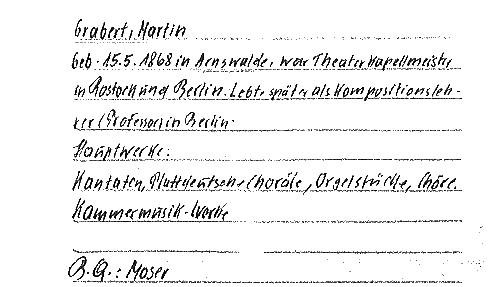 Grabert, Martin
Geb. 15.5.1868 in Arnswalde, war Theaterkapellmeister
in Rostock und Berlin. Lebte später als Kompositionsleh-
rer (Professor) in Berlin.
Hauptwerke:
Kantaten, Plattdeutsche Choräle, Orgelstücke, Chöre.
Kammermusik-Werke
B.Q.: Moser